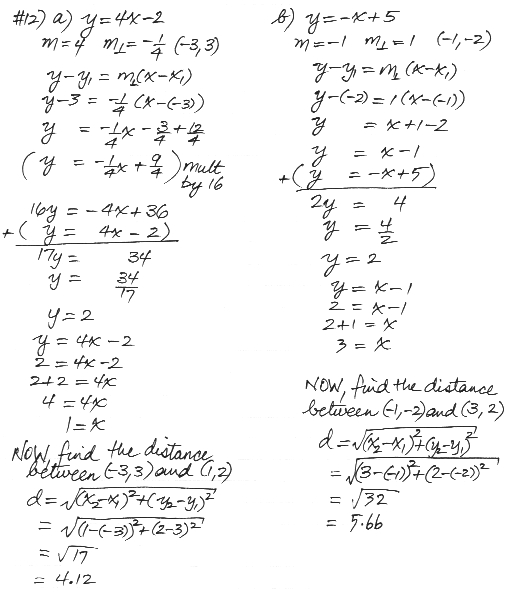 #12) a) y = 4x - 2
m = 4 m⊥ = -1/4 (-3,3)
y - y₁ = m⊥(x - x₁)
y - 3 = -1/4 (x - (-3))
y = -1/4x - 3/4 + 12/4
(y = -1/4x + 9/4) mult by 16
16y = -4x + 36
+( y = 4x - 2)
17y = 34
y = 34/17
y = 2
y = 4x - 2
2 = 4x - 2
2+2 = 4x
4 = 4x
1 = x
NOW, find the distance
between (-3,3) and (1,2)
d = √(x₂-x₁)²+(y₂-y₁)²
= √(1-(-3))²+(2-3)²
= √17
= 4.12
b) y = -x + 5
m = -1 m⊥ = 1 (-1,-2)
y - y₁ = m⊥ (x - x₁)
y - (-2) = 1(x - (-1))
y = x + 1 - 2
y = x - 1
+(y = -x + 5)
2y = 4
y = 4/2
y = 2
y = x - 1
2 = x - 1
2+1 = x
3 = x
NOW, find the distance
between (-1,-2) and (3,2)
d = √(x₂-x₁)²+(y₂-y₁)²
= √(3-(-1))²+(2-(-2))²
= √32
= 5.66